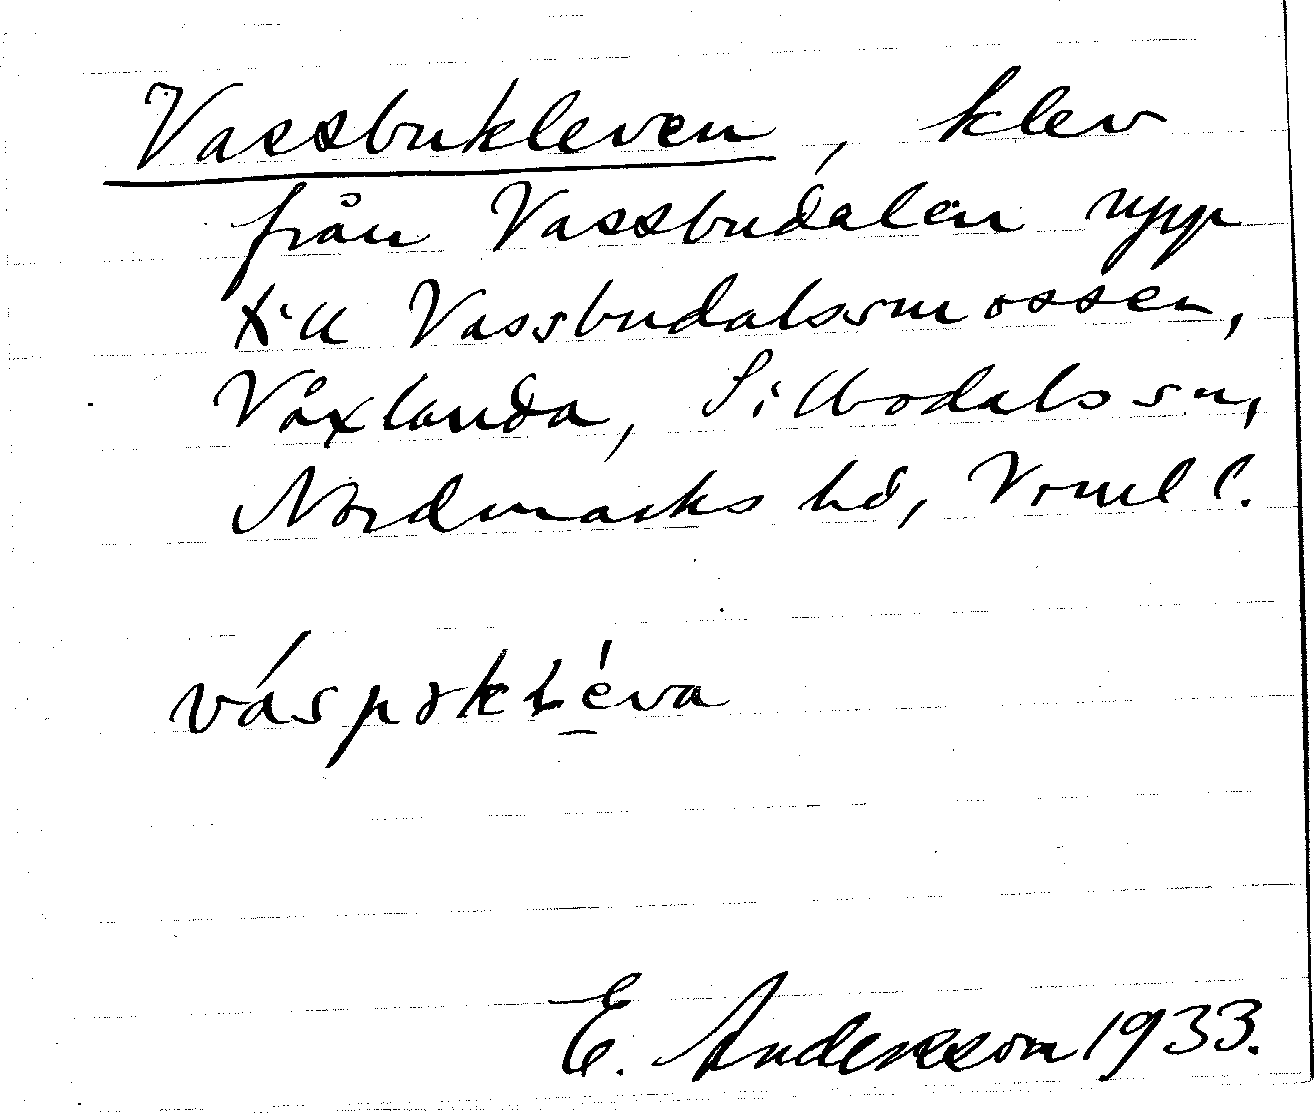 Vassbukleven, klev
från Vassbudalen upp
till Vassbudalsmossen,
Våxlanda, Sillbodals sn,
Nordmarks hd, Vrml l.
váspokʟéva
E. Andersson 1933.